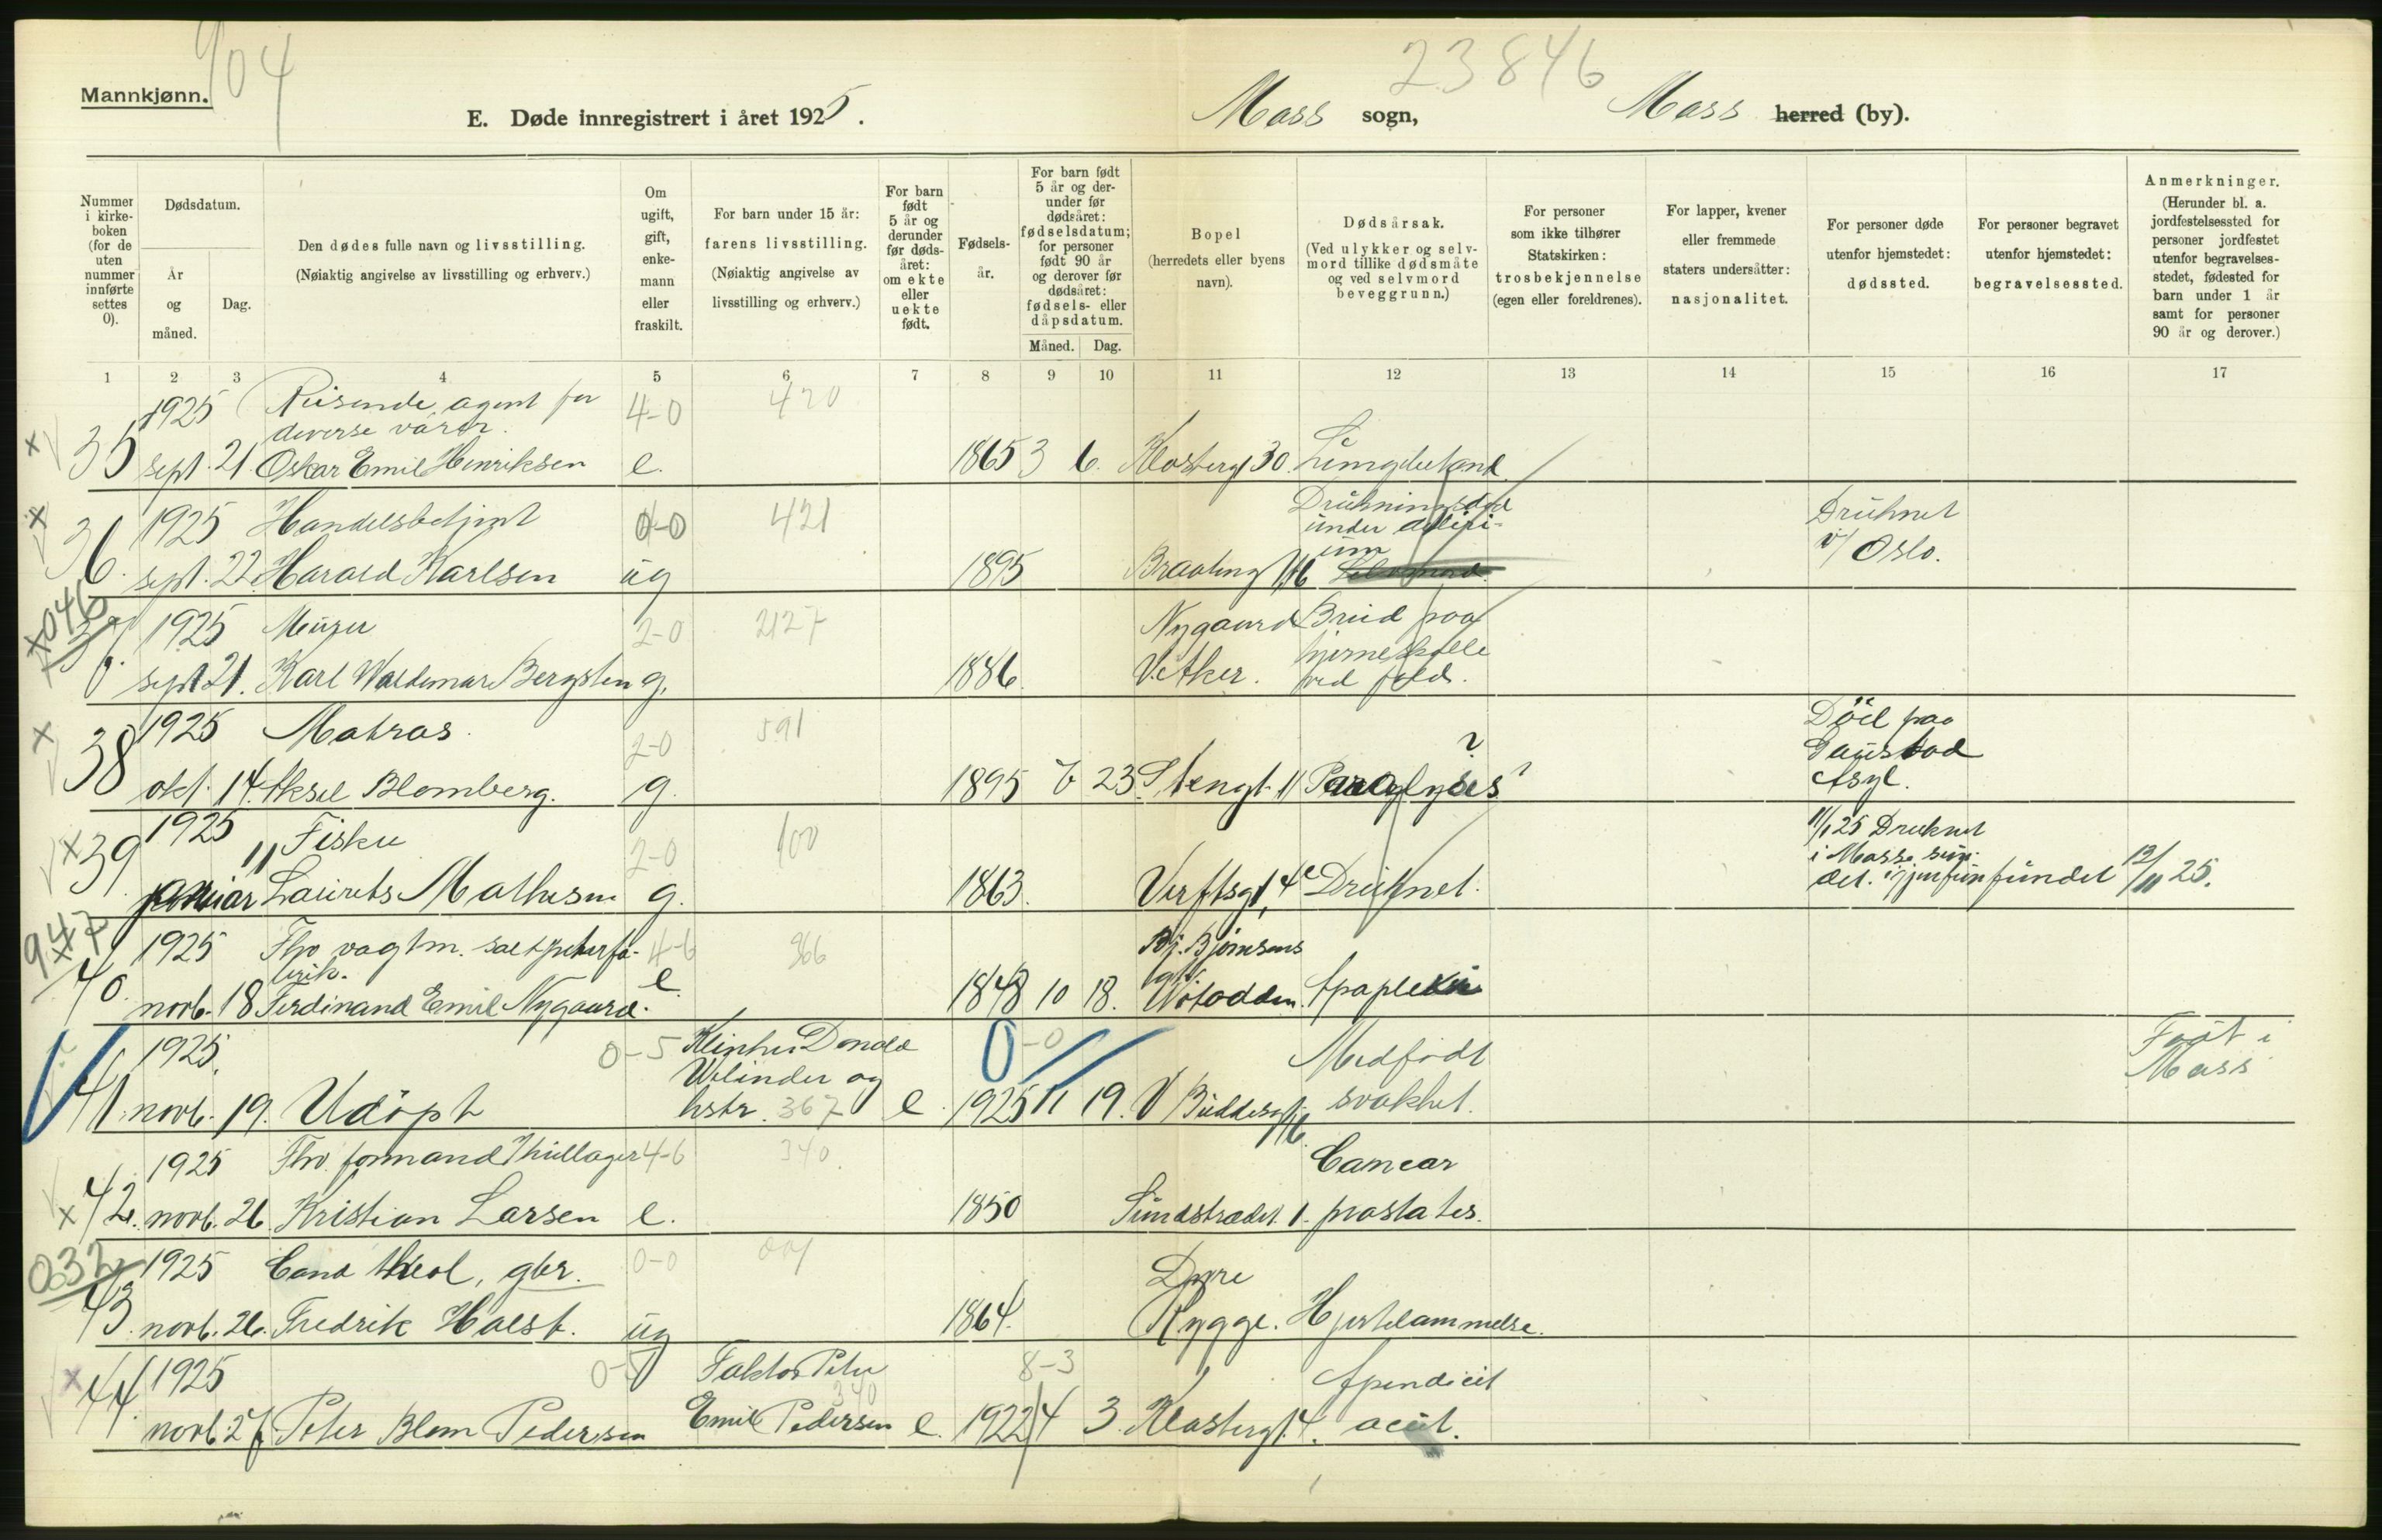 904
23846
Mannkjønn.
E. Døde innregistrert i året 1925.
Moss sogn,
Moss herred (by).
Nummer i kirke-boken (for de uten nummer innførte settes 0).
Dødsdatum.
År og måned.
Dag.
Den dødes fulle navn og livsstilling.
(Nøiaktig angivelse av livsstilling og erhverv.)
Om ugift, gift, enke-mann eller fraskilt.
For barn under 15 år: farens livsstilling.
(Nøiaktig angivelse av livsstilling og erhverv.)
For barn født 5 år og derunder før døds-året: om ekte eller uekte født.
Fødsels-år.
For barn født 5 år og der-under før dødsåret: fødselsdatum; for personer født 90 år og derover før dødsåret: fødsels- eller dåpsdatum.
Måned. Dag.
Bopel
(herredets eller byens navn).
Dødsårsak.
(Ved ulykker og selv-mord tillike dødsmåte og ved selvmord beveggrunn.)
For personer som ikke tilhører Statskirken: trosbekjennelse
(egen eller foreldrenes).
For lapper, kvener eller fremmede staters undersåtter: nasjonalitet.
For personer døde utenfor hjemstedet: dødssted.
For personer begravet utenfor hjemstedet: begravelsessted.
Anmerkninger.
(Herunder bl. a. jordfestelsessted for personer jordfestet utenfor begravelses-stedet, fødested for barn under 1 år samt for personer 90 år og derover.)
1 2 3 4 5 6 7 8 9 10 11 12 13 14 15 16 17
1925 Reisende agent for 4-0 420
diverse varer.
35 sept. 21. Oskar Emil Henriksen e. 1865 3 6. Klostergt 30.
1925 Handelsbetjent 0-0 421 Drukningsdød under deliri-um Druknet v/ Oslo.
36. sept. 22. Harald Karlsen ug 1895
046
37 1925 2-0 2127 Nygaard Brud paa hjerneskalle
sept 21. Karl Waldemar Bergsten g. 1886. V. Aker. ved fald.
1925 Matros. 2-0 591 ? Döel paa Gaustad Asyl.
38 okt. 14. Aksel Blomberg. g. 1895 6 23. Stengt. 11 ?
39 1925 11 Fisker 2-0 100 11/1 25 Druknet i Mosse sun-det. igjenfun fundet 12/11 25.
januar Laurits Mathisen g. 1863. Verftsgt, 4c Druknet.
947
40. 1925 Fhv vagtm. saltpeterfa-brik. 4-6 966 Bj. Bjørnsons gt.
novb. 18 Ferdinand Emil Nygaard. e. 1848 10 18. Notodden. Apopleksi
1925. 0-5 0-0 Medfødt Født i Moss
41. novb. 19. Udöpt hstr. 367 e. 1925 11 19. svakhet.
1925 Fhv. formand 4-6 340. Cancer
42. novb. 26. Kristian Larsen e. 1850 Sundstrædet 1. prostates.
032
1925 Cand theol, gbr. 0-0 001 Dyre
43. novb. 26. Fredrik Holst. ug 1864. Rygge. Hjertelammelse.
44. 1925 0-5 Faktor Peter 340 8-3 Apendicit
novb. 27. Peter Blom Pedersen Emil Pedersen e. 1922 4 3. Klostergt. 4. acut.